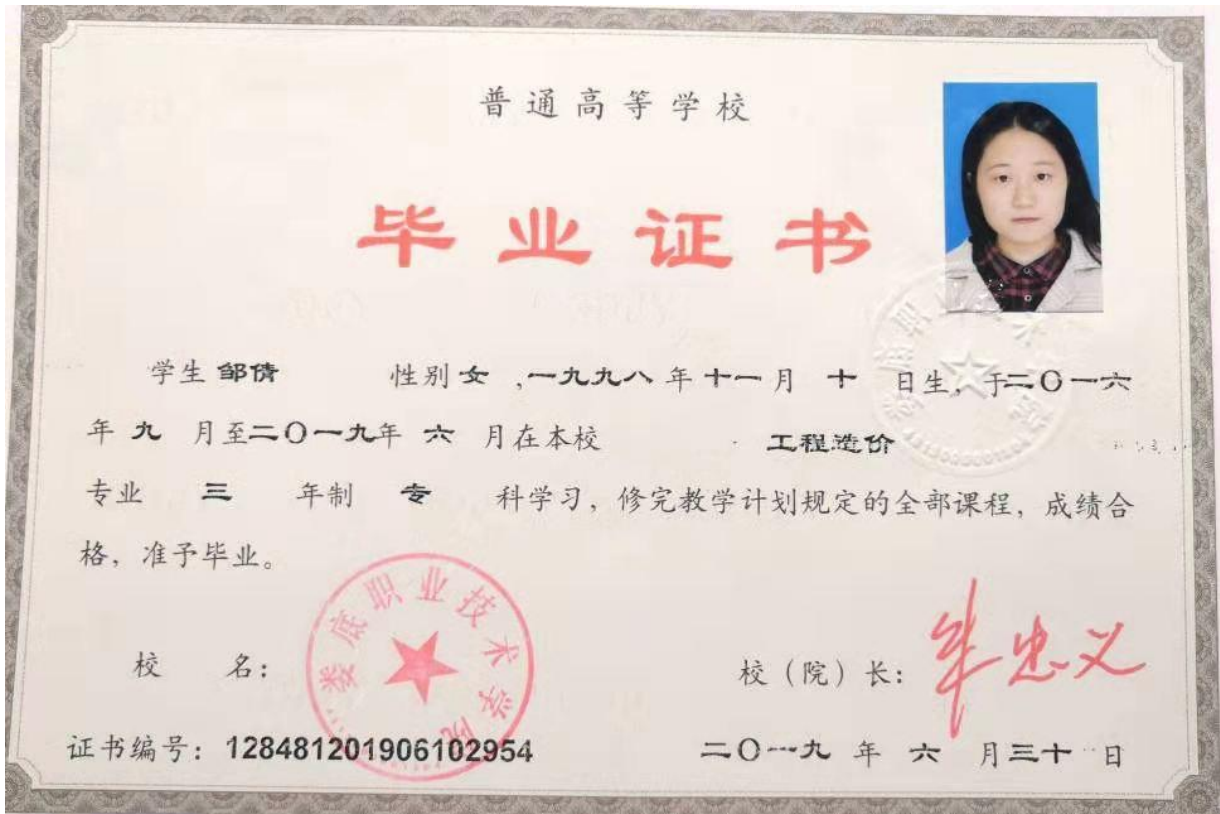 普通高等学校
毕业证书
学生 邹倩 性别 女 ,一九九八 年 十一 月 十 日生, 于二〇一六
年 九 月至二〇一九年 六 月在本校 工程造价
专业 三 年制 专 科学习，修完教学计划规定的全部课程，成绩合
格，准予毕业。
校 名：
娄底职业技术学院
校（院）长：
证书编号：128481201906102954
二〇一九 年 六 月三十 日